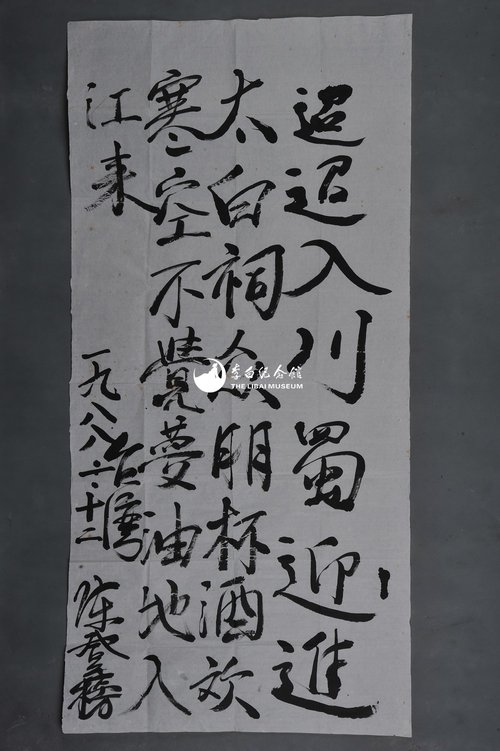 迢迢入川蜀迎進
太白祠众朋杯酒欢
寒二空不覺蔓油地入
江来
一九八八
十二
台灣
陈登
李白纪念馆
THE LIBAI MUSEUM